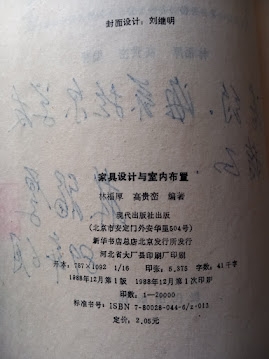 封面设计：刘继明
家具设计与室内布置
林福厚 高贵峦 编著
现代出版社出版
(北京市安定门外安华里504号)
新华书店总店北京发行所发行
河北省大厂县印刷厂印刷
开本：787×1092 1/16 印张：5.375 字数：41千字
1988年12月第1版 1988年12月第1次印刷
印数：1—20000
标准书号：ISBN 7-80028-044-6/z·013
定价：2.05元